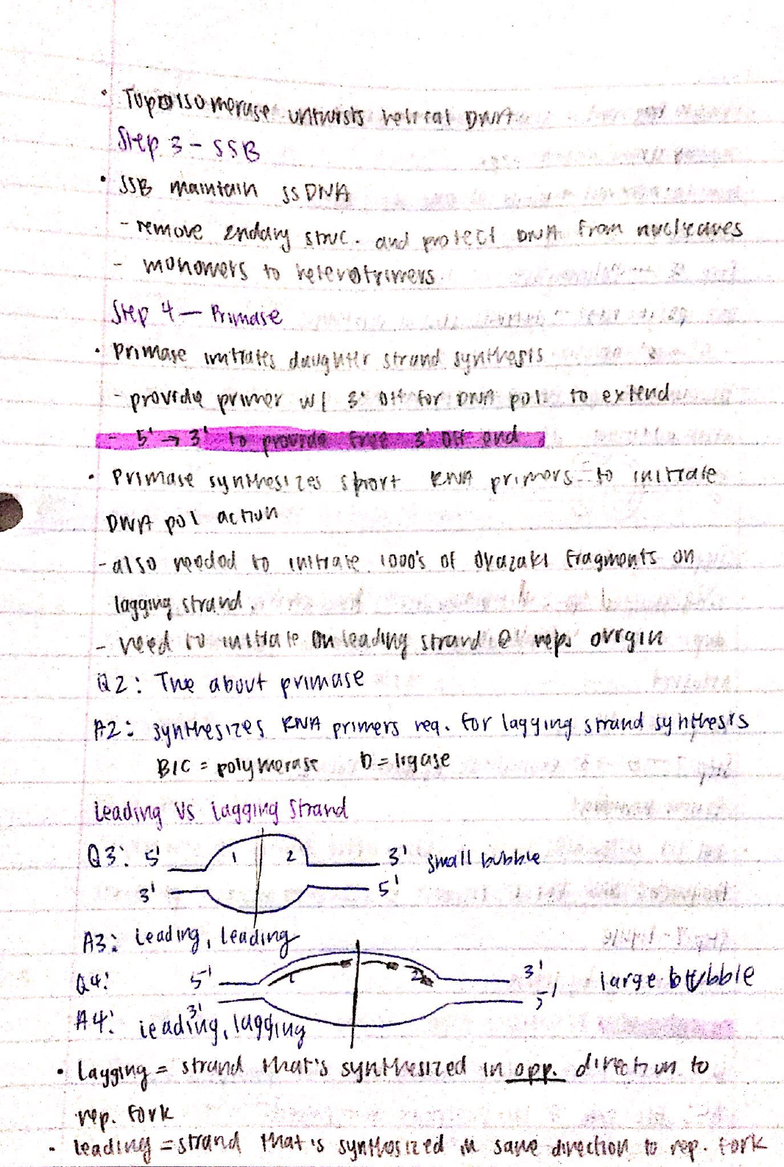 • Topoisomerase untwists helical DNA
Step 3 - SSB
• SSB maintain ssDNA
- remove 2ndary struc. and protect DNA from nucleases
- monomers to heterotrimers
Step 4 — Primase
• Primase initiates daughter strand synthesis
- provide primer w/ 3' OH for DNA pol to extend
- 5' → 3' to provide free 3' OH end
• Primase synthesizes short RNA primers to initiate
DNA pol action
- also needed to initiate 1000's of Okazaki fragments on
lagging strand.
- need to initiate on leading strand @ rep. origin
Q2: True about primase
A2: synthesizes RNA primers req. for lagging strand synthesis
B/C = polymerase D = ligase
Leading vs Lagging Strand
Q3: 5' 1 2 3' small bubble
3' 5'
A3: Leading, leading
Q4: 5' 1 2 3' large bubble
3' 5'
A4: leading, lagging
• Lagging = strand that's synthesized in opp. direction to
rep. fork
• leading = strand that's synthesized in same direction to rep. fork